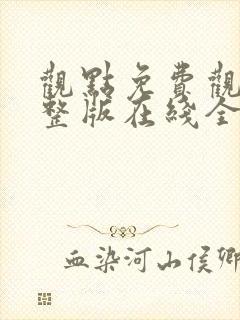 觀點免費觀
整版在綫全
血染河山侯卿